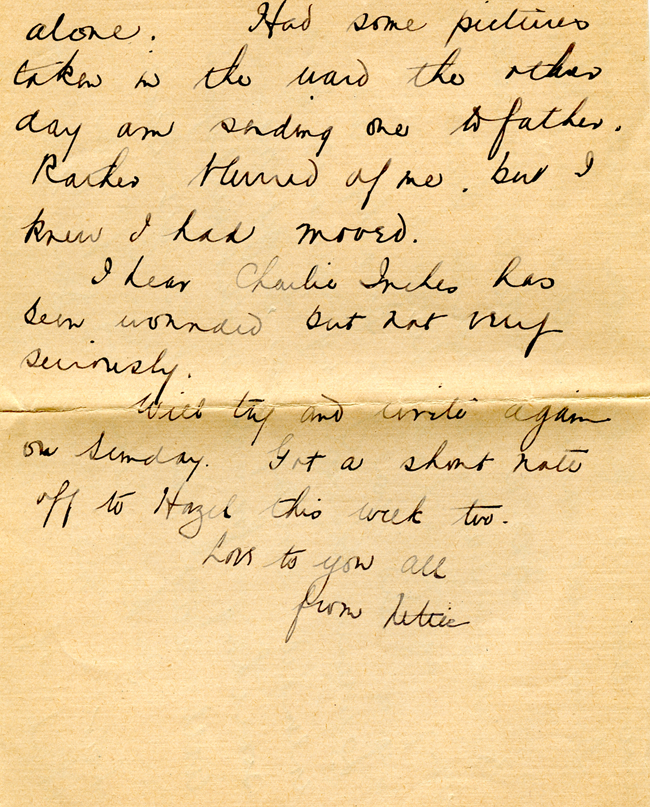 alone. Had some pictures
taken in the ward the other
day am sending one to father.
Rather blurred of me, but I
knew I had moved.
I hear Charlie Inches has
been wounded but not very
seriously.
Will try and write again
on Sunday. Got a short note
off to Hazel this week too.
Love to you all
from Nettie